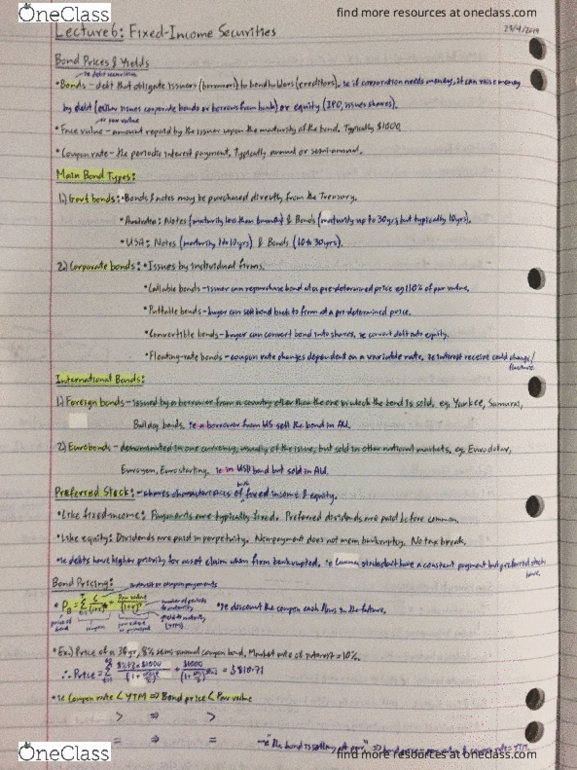 OneClass
find more resources at oneclass.com
Lecture 6: Fixed-Income Securities
23/4/2019
Bond Prices & Yields
ie debt securities
• Bonds - debt that obligate issuers (borrowers) to bondholders (creditors). ie if corporation needs money, it can raise money
by debt (either issues corporate bonds or borrows from bank) or equity (IPO, issues shares).
or par value
• Face value - amount repaid by the issuer upon the maturity of the bond. Typically $1000
• Coupon rate - the periodic interest payment, typically annual or semi-annual.
Main Bond Types:
1.) Govt bonds: • Bonds & notes may be purchased directly from the Treasury.
• Australia: Notes (maturity less than 6 months) & Bonds (maturity up to 30yrs, but typically 10yrs).
• USA: Notes (maturity 1 to 10yrs) & Bonds (10 to 30yrs).
2.) Corporate bonds: • Issues by individual firms.
• Callable bonds - issuer can repurchase bond at a pre-determined price eg 110% of par value.
• Puttable bonds - buyer can sell bond back to firm at a pre-determined price.
• Convertible bonds - buyer can convert bond into shares, ie convert debt into equity.
• Floating-rate bonds - coupon rate changes dependent on a variable rate, ie interest receive could change/
fluctuate
International Bonds:
1.) Foreign bonds - issued by a borrower from a country other than the one in which the bond is sold, eg Yankee, Samurai,
Bulldog bonds. ie a borrower from US sell the bond in AU.
2.) Eurobonds - denominated in one currency, usually of the issuer, but sold in other national markets, eg Eurodollar,
Euroyen, Eurosterling. ie in USD bond but sold in AU.
Preferred Stock: - shares characteristics of both fixed income & equity.
• Like fixed-income: Payments are typically fixed. Preferred dividends are paid before common.
• Like equity: Dividends are paid in perpetuity. Nonpayment does not mean bankruptcy. No tax break.
• ie debts have higher priority for asset claim when firm bankrupted. ie Common stocks don't have a constant payment but preferred stocks
have.
Bond Pricing:
interest or coupon payments
Par value
number of periods to maturity
price of bond
coupon
par value or principal
yield to maturity (YTM)
• ie discount the coupon cash flows in the future.
• Ex.) Price of a 30yr, 8% semi-annual coupon bond, Market rate of interest = 10%.
= $810.71
• ie Coupon rate < YTM ⇒ Bond price < Par value
> ⇒ >
= ⇒ =
OneClass
find more resources at oneclass.com